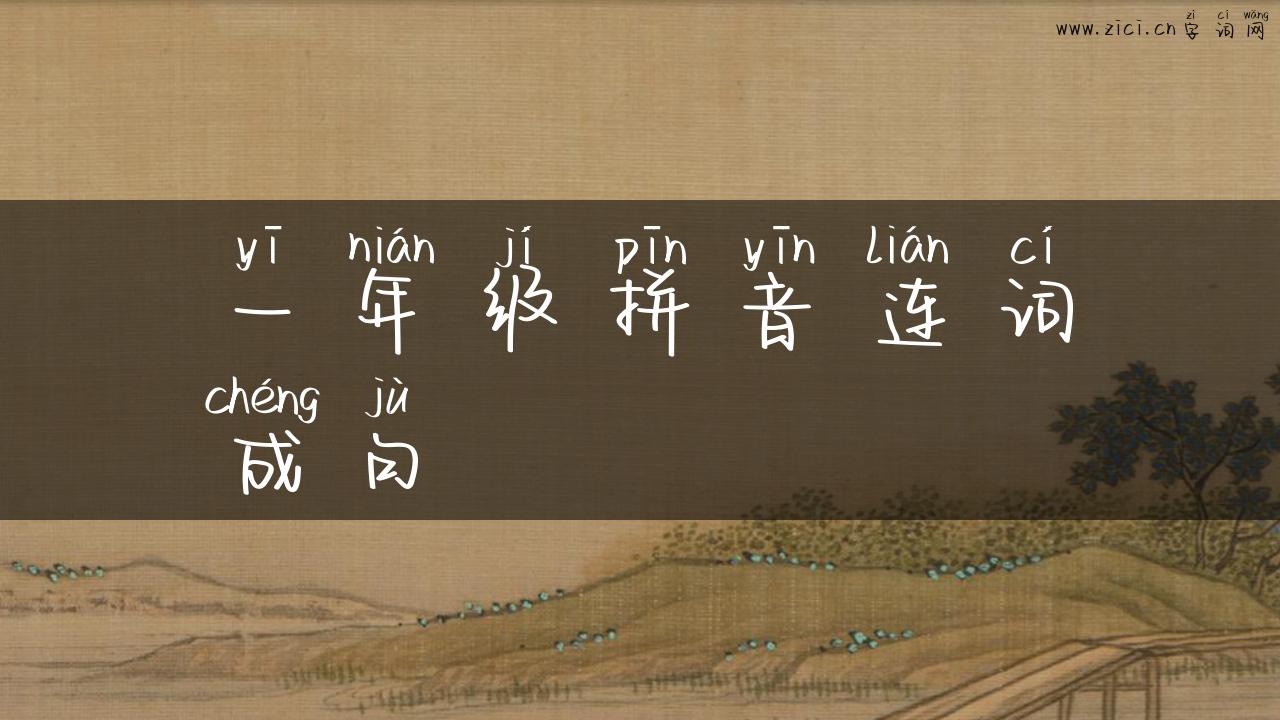 zì cí wǎng
www.zici.cn 字词网
yī nián jí pīn yīn lián cí
一年级拼音连词
chéng jù
成句